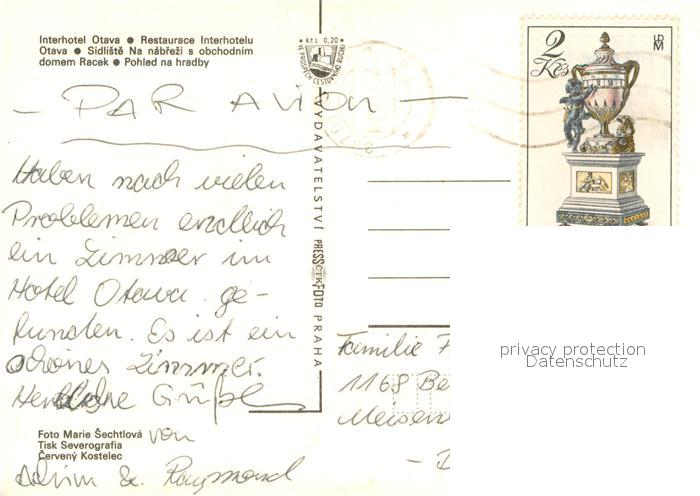 Interhotel Otava ● Restaurace Interhotelu
Otava ● Sídliště Na nábřeží s obchodním
domem Racek ● Pohled na hradby
Kčs 0,20
VE PROSPĚCH CESTOVNÍHO RUCHU
2
Kčs
— PAR AVION —
Haben nach vielen
Problemen endlich
ein Zimmer im
Hotel Otava ge-
funden. Es ist ein
schönes Zimmer.
Herzliche Grüße
von
& Raymond
VYDAVATELSTVÍ PRESSFOTO PRAHA
ČTK
Familie
1168 Be
Foto Marie Šechtlová
Tisk Severografia
Červený Kostelec
privacy protection
Datenschutz